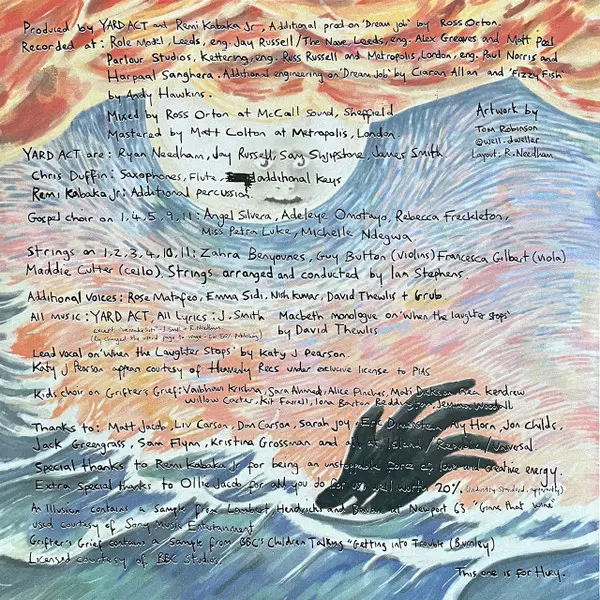 Produced by YARD ACT and Remi Kabaka Jr, Additional prod on 'Dream job' by Ross Orton.
Recorded at: Role Model, Leeds, eng. Jay Russell/The Nave, Leeds, eng. Alex Greaves and Matt Peel
Parlour Studios, Kettering, eng. Russ Russell and Metropolis, London, eng. Paul Norris and
Harpaal Sanghera. Additional engineering on 'Dream Job' by Ciaran Allan and 'Fizzy Fish'
by Andy Hawkins.
Mixed by Ross Orton at McCall Sound, Sheffield
Mastered by Matt Colton at Metropolis, London
Artwork by
Tom Robinson
@well.dweller
Layout: R. Needham
YARD ACT are: Ryan Needham, Jay Russell, Sam Shjipstone, James Smith
Chris Duffin: Saxophones, Flute, additional keys
Remi Kabaka Jr: Additional percussion.
Gospel choir on 1, 4, 5, 9, 11: Angel Silvera, Adeleye Omotayo, Rebecca Freckleton,
Miss Petra Luke, Michelle Ndegwa.
Strings on 1, 2, 3, 4, 10, 11: Zahra Benyounes, Guy Button (violins) Francesca Gilbert (viola)
Maddie Cutter (cello). Strings arranged and conducted by Ian Stephens.
Additional Voices: Rose Matafeo, Emma Sidi, Nish Kumar, David Thewlis + Grub.
All music: YARD ACT. All Lyrics: J. Smith
Macbeth monologue on 'When the laughter stops'
by David Thewlis
Lead vocal on 'When the Laughter Stops' by Katy J Pearson.
Katy J Pearson appears courtesy of Heavenly Recs under exclusive license to PIAS
Kids choir on Grifter's Grief: Vaibhavi Krishna, Sara Ahmed, Alice Pinches, Mati Dickeson, Rea Kendrew
Willow Carter, Kit Farrell, Iona Barton Reddy
Thanks to: Matt Jacob, Liv Carson, Don Carson, Sarah Joy, Horn, Jon Childs,
Jack Greengrass, Sam Flynn, Kristina Grossman and all at Island / Republic / Universal
Special thanks to Remi Kabaka Jr for being an unstoppable force of love and creative energy.
Extra special thanks to Ollie Jacob for all you do for us, well worth 20%. (industry standard, apparently)
An Illusion contains a sample from Lambert Hendricks and Bavan at Newport 63 "Gimme that wine"
used courtesy of Sony Music Entertainment
Grifter's Grief contains a sample from BBC's Children Talking "Getting into Trouble (Burnley)
Licensed courtesy of BBC Studios.
This one is for Huey.